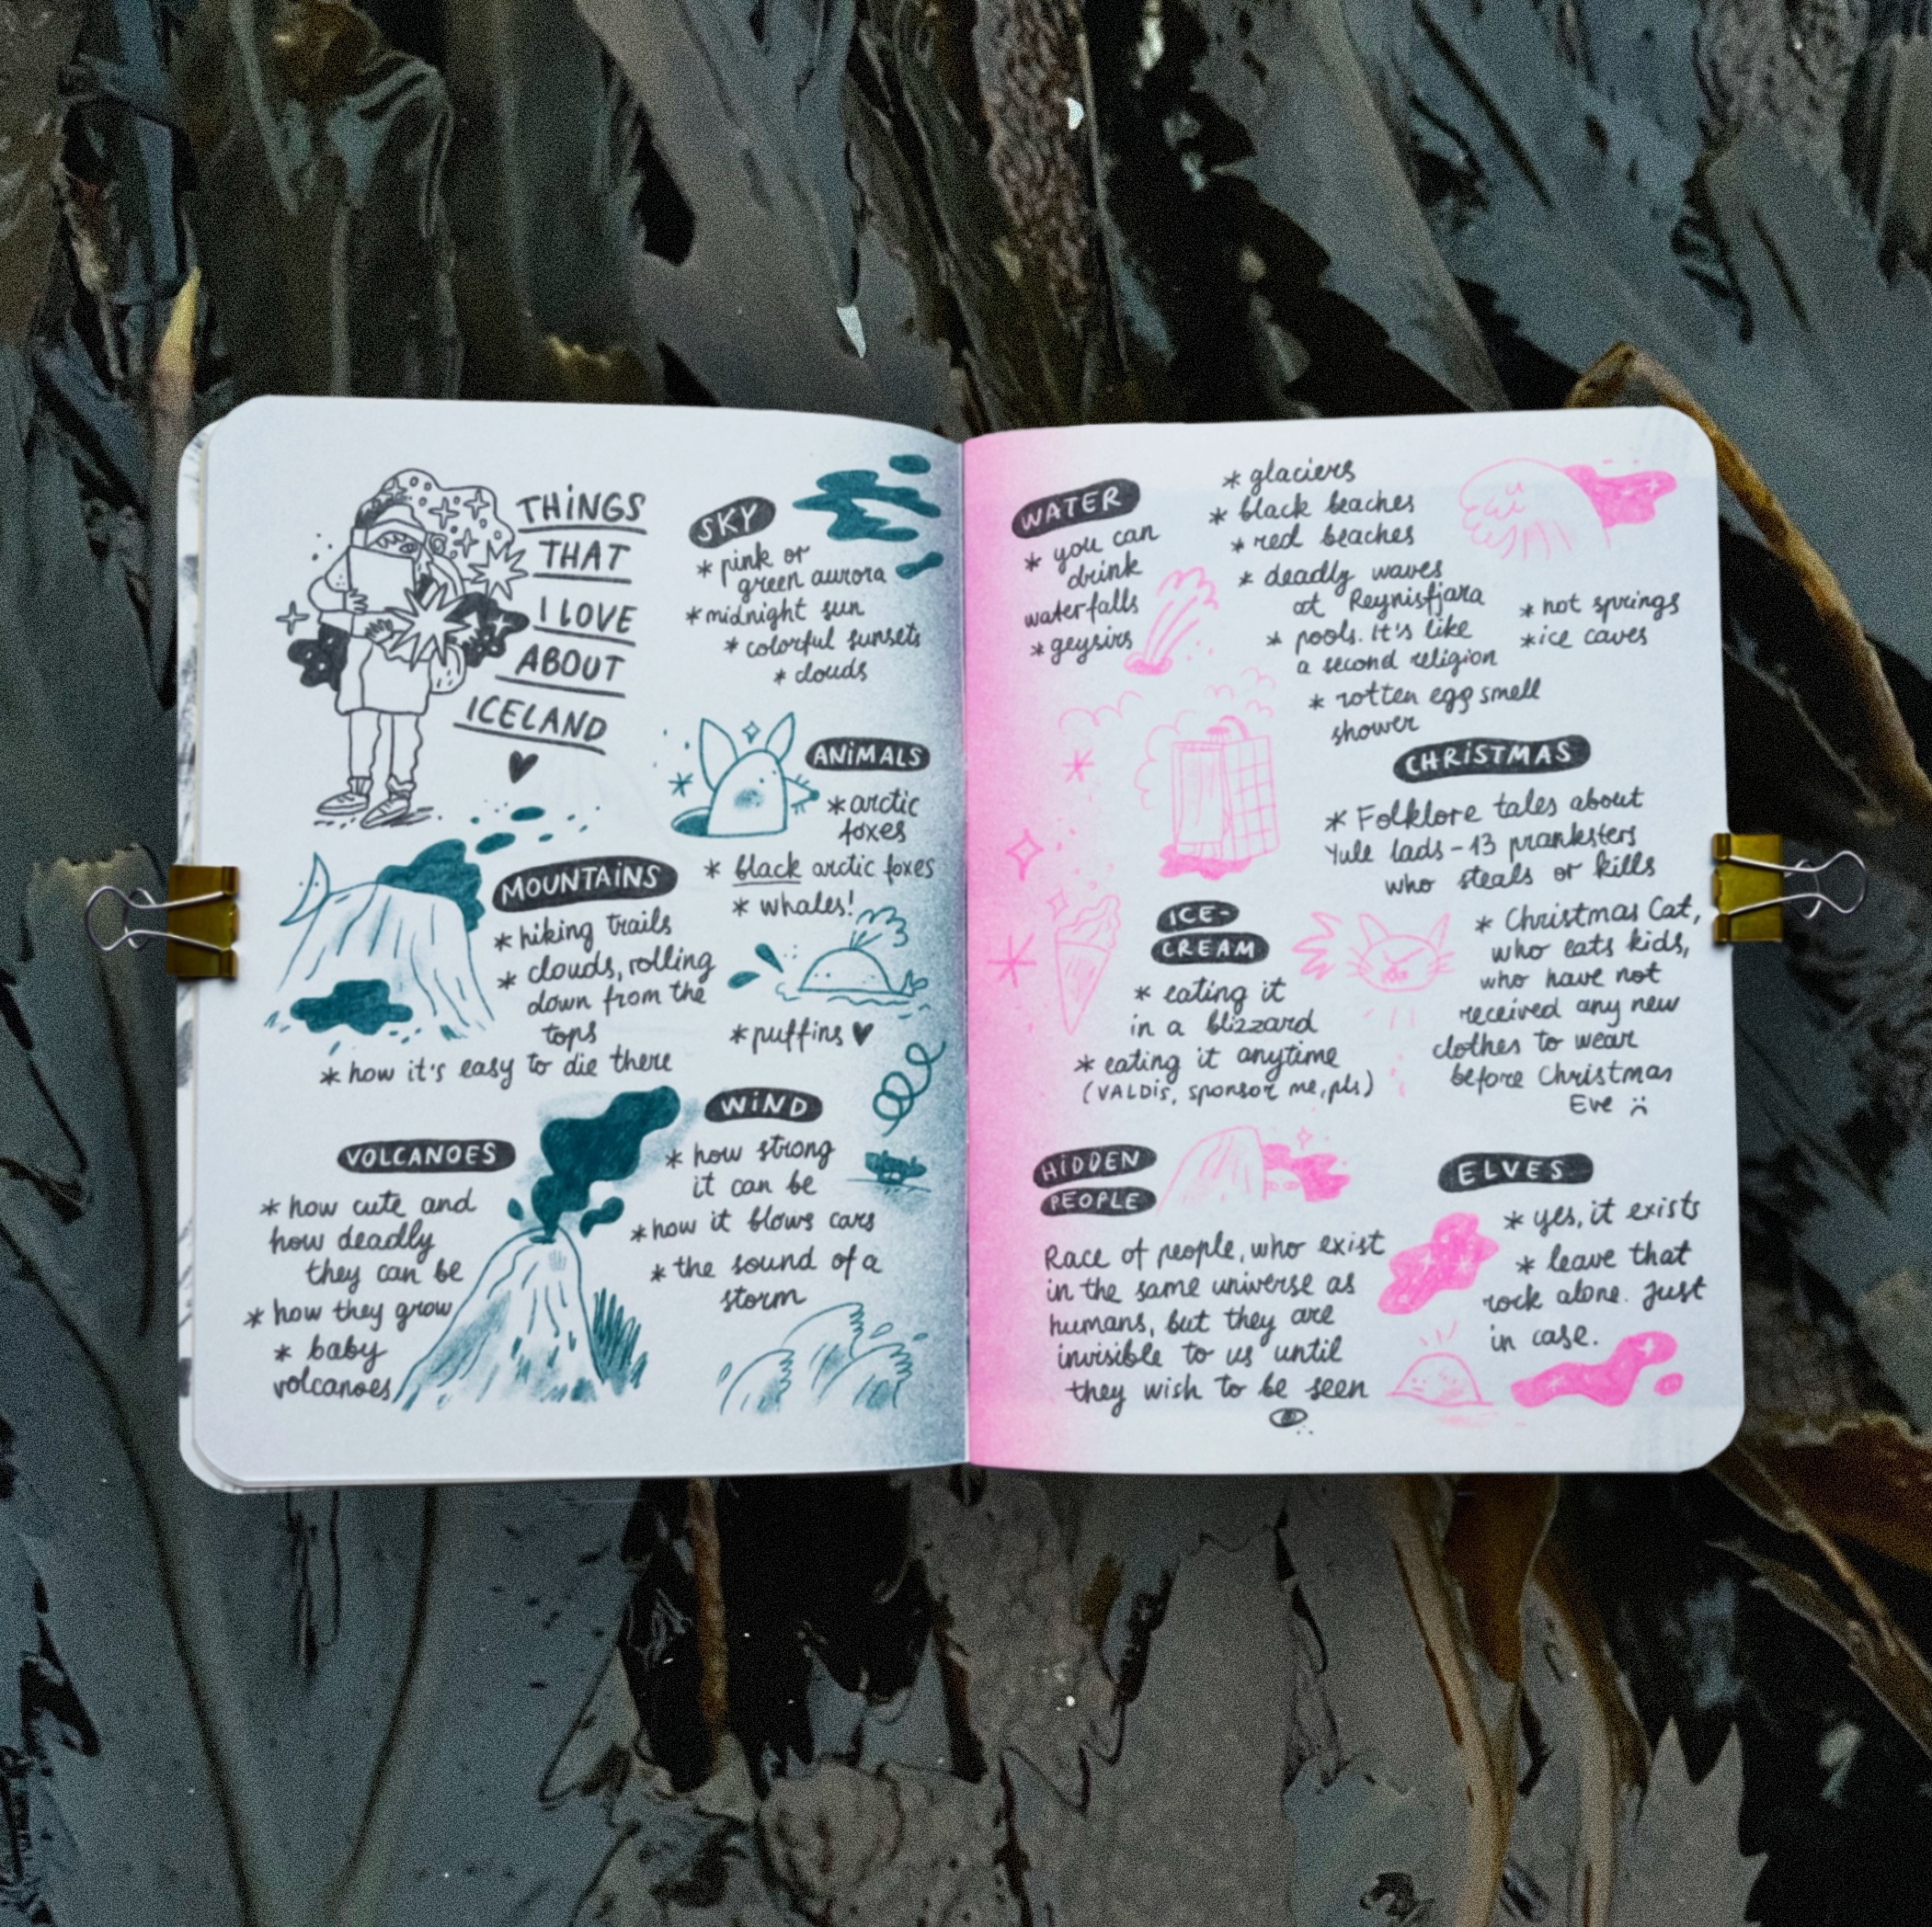 THINGS
THAT
I LOVE
ABOUT
ICELAND
SKY
* pink or
green aurora
* midnight sun
* colorful sunsets
* clouds
ANIMALS
* arctic
foxes
* black arctic foxes
* whales!
* puffins
MOUNTAINS
* hiking trails
* clouds, rolling
down from the
tops
* how it's easy to die there
VOLCANOES
* how cute and
how deadly
they can be
* how they grow
* baby
volcanoes
WIND
* how strong
it can be
* how it blows cars
* the sound of a
storm
WATER
* you can
drink
waterfalls
* geysirs
* glaciers
* black beaches
* red beaches
* deadly waves
at Reynisfjara
* pools. it's like
a second religion
* rotten egg smell
shower
* hot springs
* ice caves
CHRISTMAS
* Folklore tales about
Yule lads - 13 pranksters
who steals or kills
* Christmas Cat,
who eats kids,
who have not
received any new
clothes to wear
before Christmas
Eve :(
ICE-
CREAM
* eating it
in a blizzard
* eating it anytime
(VALDIS, sponsor me, pls)
HIDDEN
PEOPLE
Race of people, who exist
in the same universe as
humans, but they are
invisible to us until
they wish to be seen
ELVES
* yes, it exists
* leave that
rock alone. Just
in case.